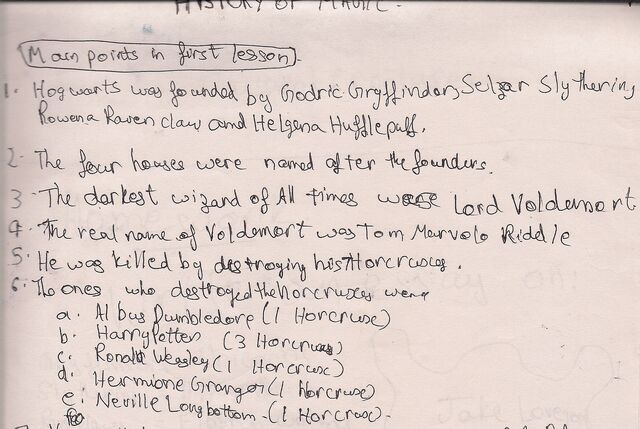 HISTORY OF MAGIC.
Main points in first lesson.
1. Hogwarts was founded by Godric Gryffindor, Selzar Slytherin,
Rowena Ravenclaw and Helgena Hufflepuff.
2. The four houses were named after the founders.
3 The darkest wizard of All times was Lord Voldemort.
4. The real name of Voldemort was Tom Marvolo Riddle
5. He was killed by destroying his Horcruxes.
6. The ones who destroyed the horcruxes were
a. Albus Dumbledore (1 Horcruxe)
b. Harry Potter (3 Horcruxes)
c. Ronald Weasley (1 Horcruxe)
d. Hermione Granger (1 Horcruxe)
e. Neville Longbottom - (1 Horcruxe) -